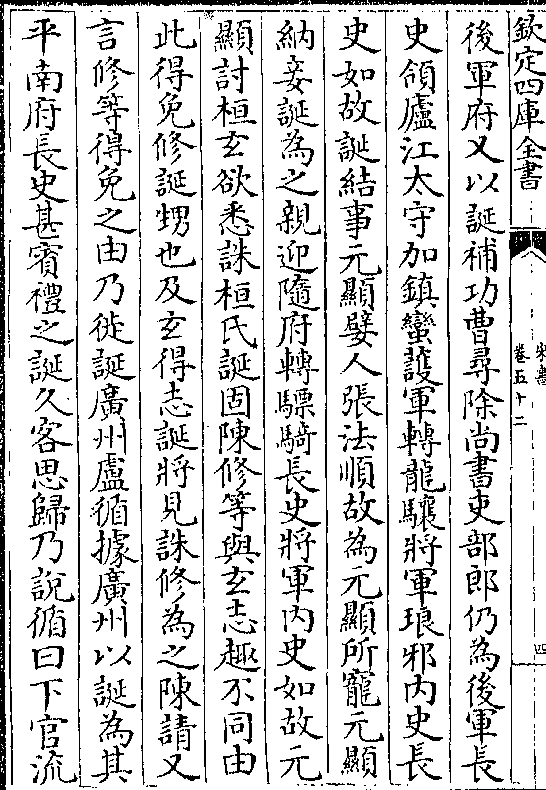 欽定四庫全書
宋書
卷五十二
四
後軍府又以誕補功曹尋除尚書吏部郎仍為後軍長
史領廬江太守加鎮蠻護軍轉龍驤將軍琅邪内史長
史如故誕結事元顯嬖人張法順故為元顯所寵元顯
納妾誕為之親迎隨府轉驃騎長史將軍内史如故元
顯討桓玄欲悉誅桓氏誕固陳修等與玄志趣不同由
此得免修誕甥也及玄得志誕將見誅修為之陳請又
言修等得免之由乃徙誕廣州盧循據廣州以誕為其
平南府長史甚賓禮之誕久客思歸乃說循曰下官流